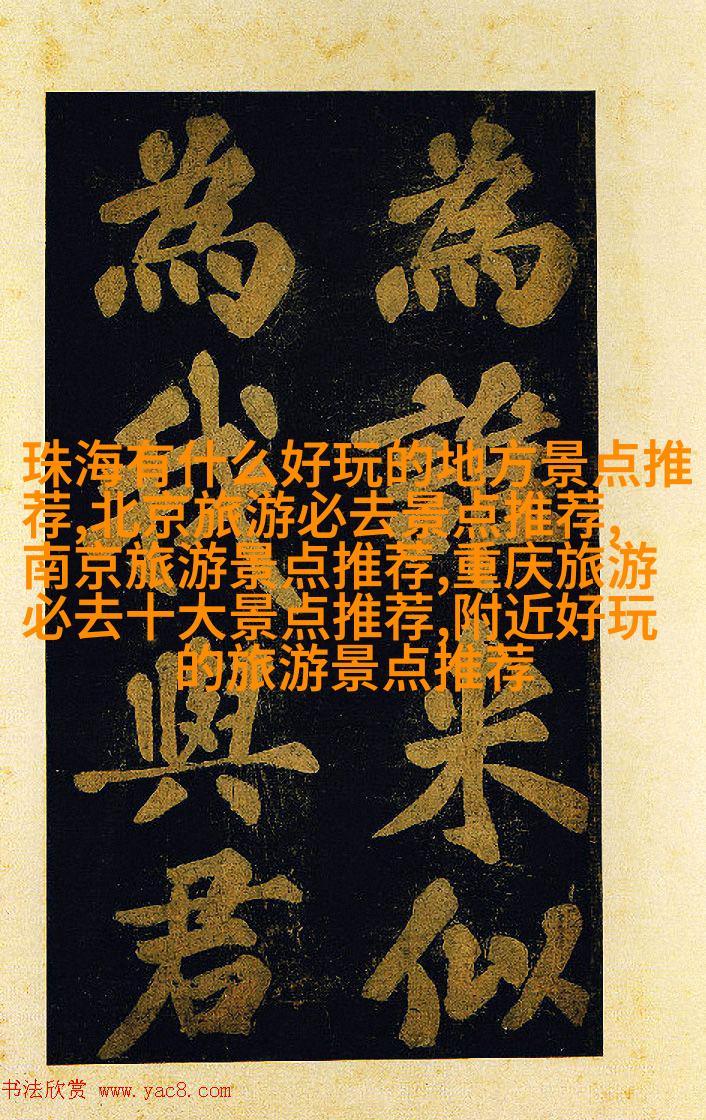 珠海有什么好玩的地方景点推
荐,北京旅游必去景点推荐,
南京旅游景点推荐,重庆旅游
必去十大景点推荐,附近好玩
的旅游景点推荐
為誰米似
為我與君
书法欣赏 www.yac8.com